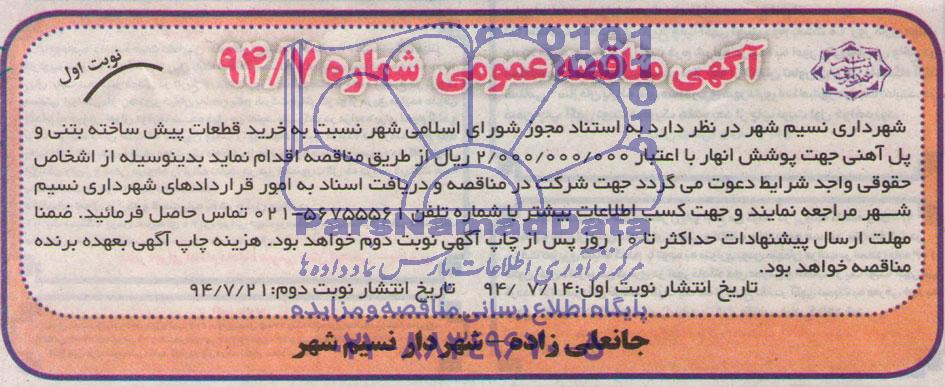 آگهی مناقصه عمومی شماره ۹۴/۷
نوبت اول
شهرداری نسیم شهر در نظر دارد به استناد مجوز شورای اسلامی شهر نسبت به خرید قطعات پیش ساخته بتنی و
پل آهنی جهت پوشش انهار با اعتبار ۲/۰۰۰/۰۰۰/۰۰۰ ریال از طریق مناقصه اقدام نماید بدینوسیله از اشخاص
حقوقی واجد شرایط دعوت می گردد جهت شرکت در مناقصه و دریافت اسناد به امور قراردادهای شهرداری نسیم
شهر مراجعه نمایند و جهت کسب اطلاعات بیشتر با شماره تلفن ۵۶۷۵۵۵۶۱-۰۲۱ تماس حاصل فرمائید. ضمنا
مهلت ارسال پیشنهادات حداکثر تا ۱۰ روز پس از چاپ آگهی نوبت دوم خواهد بود. هزینه چاپ آگهی بعهده برنده
مناقصه خواهد بود.
تاریخ انتشار نوبت اول: ۹۴/ ۷/۱۴ تاریخ انتشار نوبت دوم: ۹۴/۷/۲۱
جانعلی زاده – شهردار نسیم شهر
ParsNamadData
مرکز فرآوری اطلاعات پارس نماد داده ها
پایگاه اطلاع رسانی مناقصه و مزایده